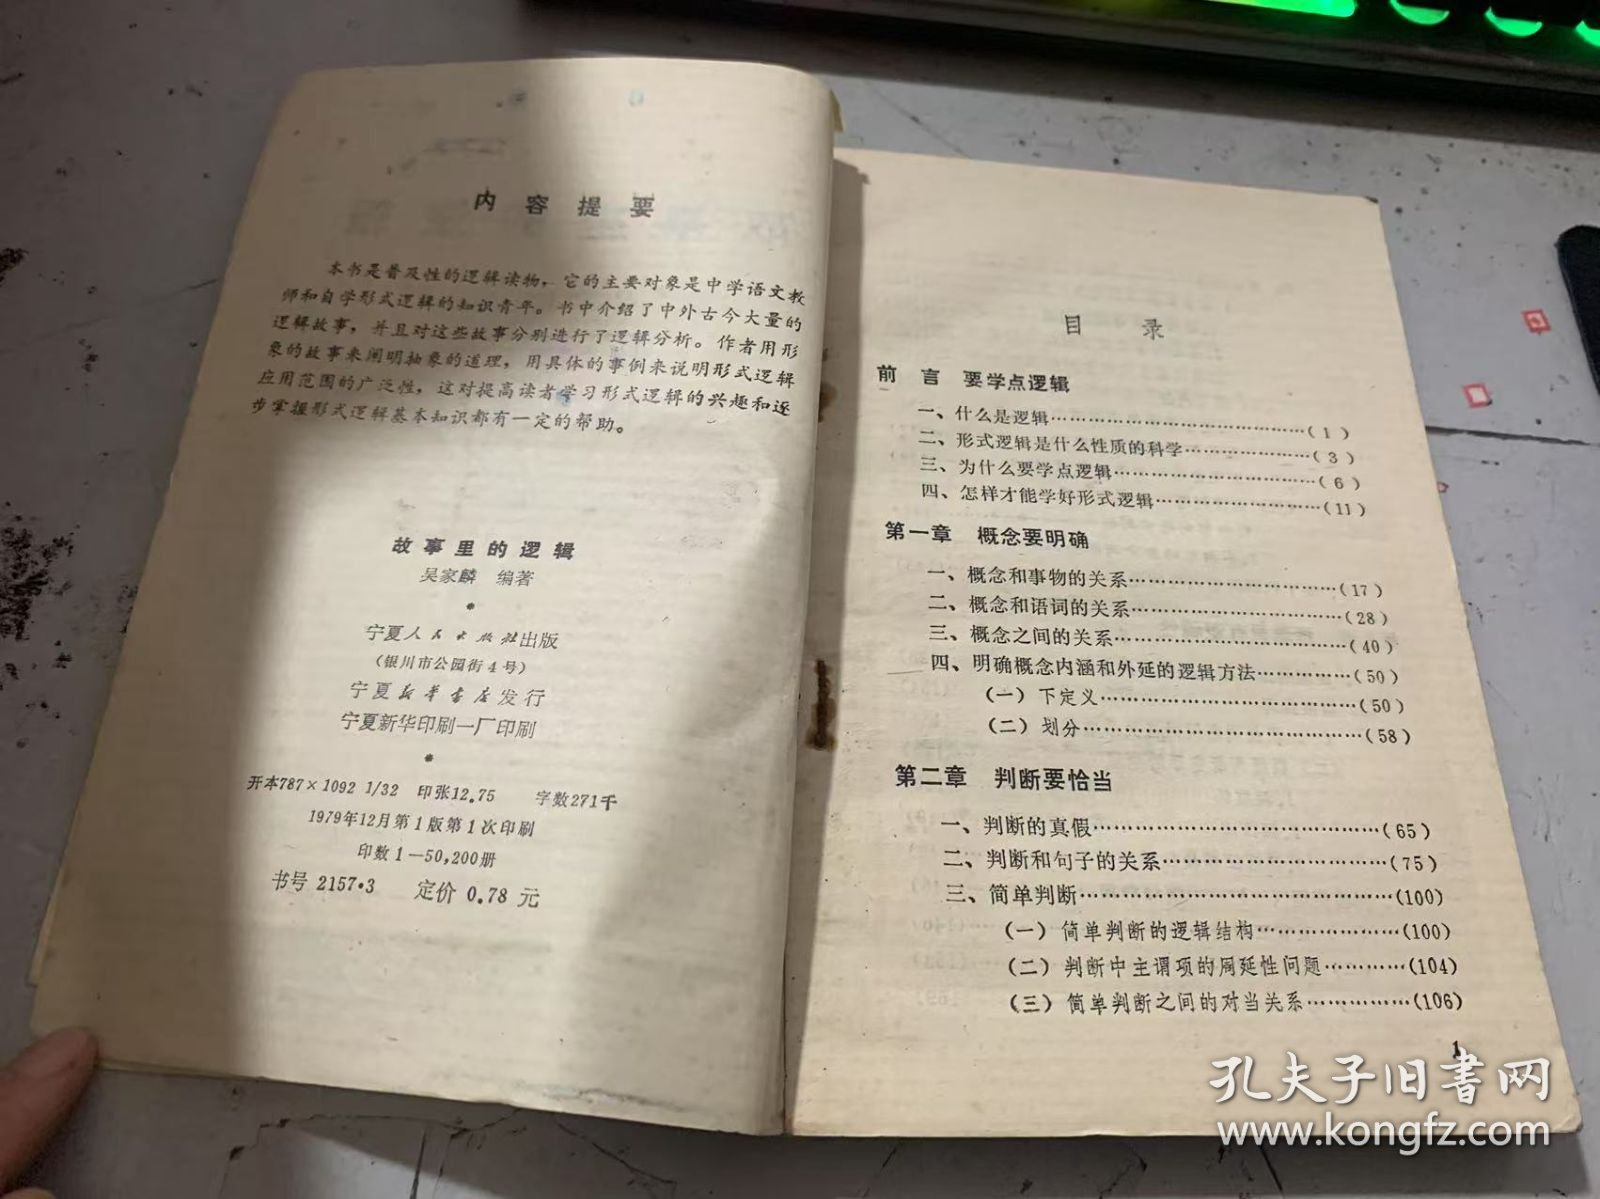 内容提要
本书是普及性的逻辑读物，它的主要对象是中学语文教
师和自学形式逻辑的知识青年。书中介绍了中外古今大量的
逻辑故事，并且对这些故事分别进行了逻辑分析。作者用形
象的故事来阐明抽象的道理，用具体的事例来说明形式逻辑
应用范围的广泛性，这对提高读者学习形式逻辑的兴趣和逐
步掌握形式逻辑基本知识都有一定的帮助。
故事里的逻辑
吴家麟 编著
*
宁夏人民出版社出版
（银川市公园街4号）
宁夏新华书店发行
宁夏新华印刷一厂印刷
*
开本787×1092 1/32 印张12.75 字数271千
1979年12月第1版第1次印刷
印数1—50,200册
书号 2157·3 定价 0.78 元
目 录
前 言 要学点逻辑
一、什么是逻辑……………………………（1）
二、形式逻辑是什么性质的科学…………………（3）
三、为什么要学点逻辑…………………………（6）
四、怎样才能学好形式逻辑……………………（11）
第一章 概念要明确
一、概念和事物的关系…………………………（17）
二、概念和语词的关系…………………………（28）
三、概念之间的关系……………………………（40）
四、明确概念内涵和外延的逻辑方法……………（50）
（一）下定义…………………………………（50）
（二）划分……………………………………（58）
第二章 判断要恰当
一、判断的真假…………………………………（65）
二、判断和句子的关系…………………………（75）
三、简单判断……………………………………（100）
（一）简单判断的逻辑结构…………………（100）
（二）判断中主谓项的周延性问题…………（104）
（三）简单判断之间的对当关系……………（106）
1
孔夫子旧书网
www.kongfz.com